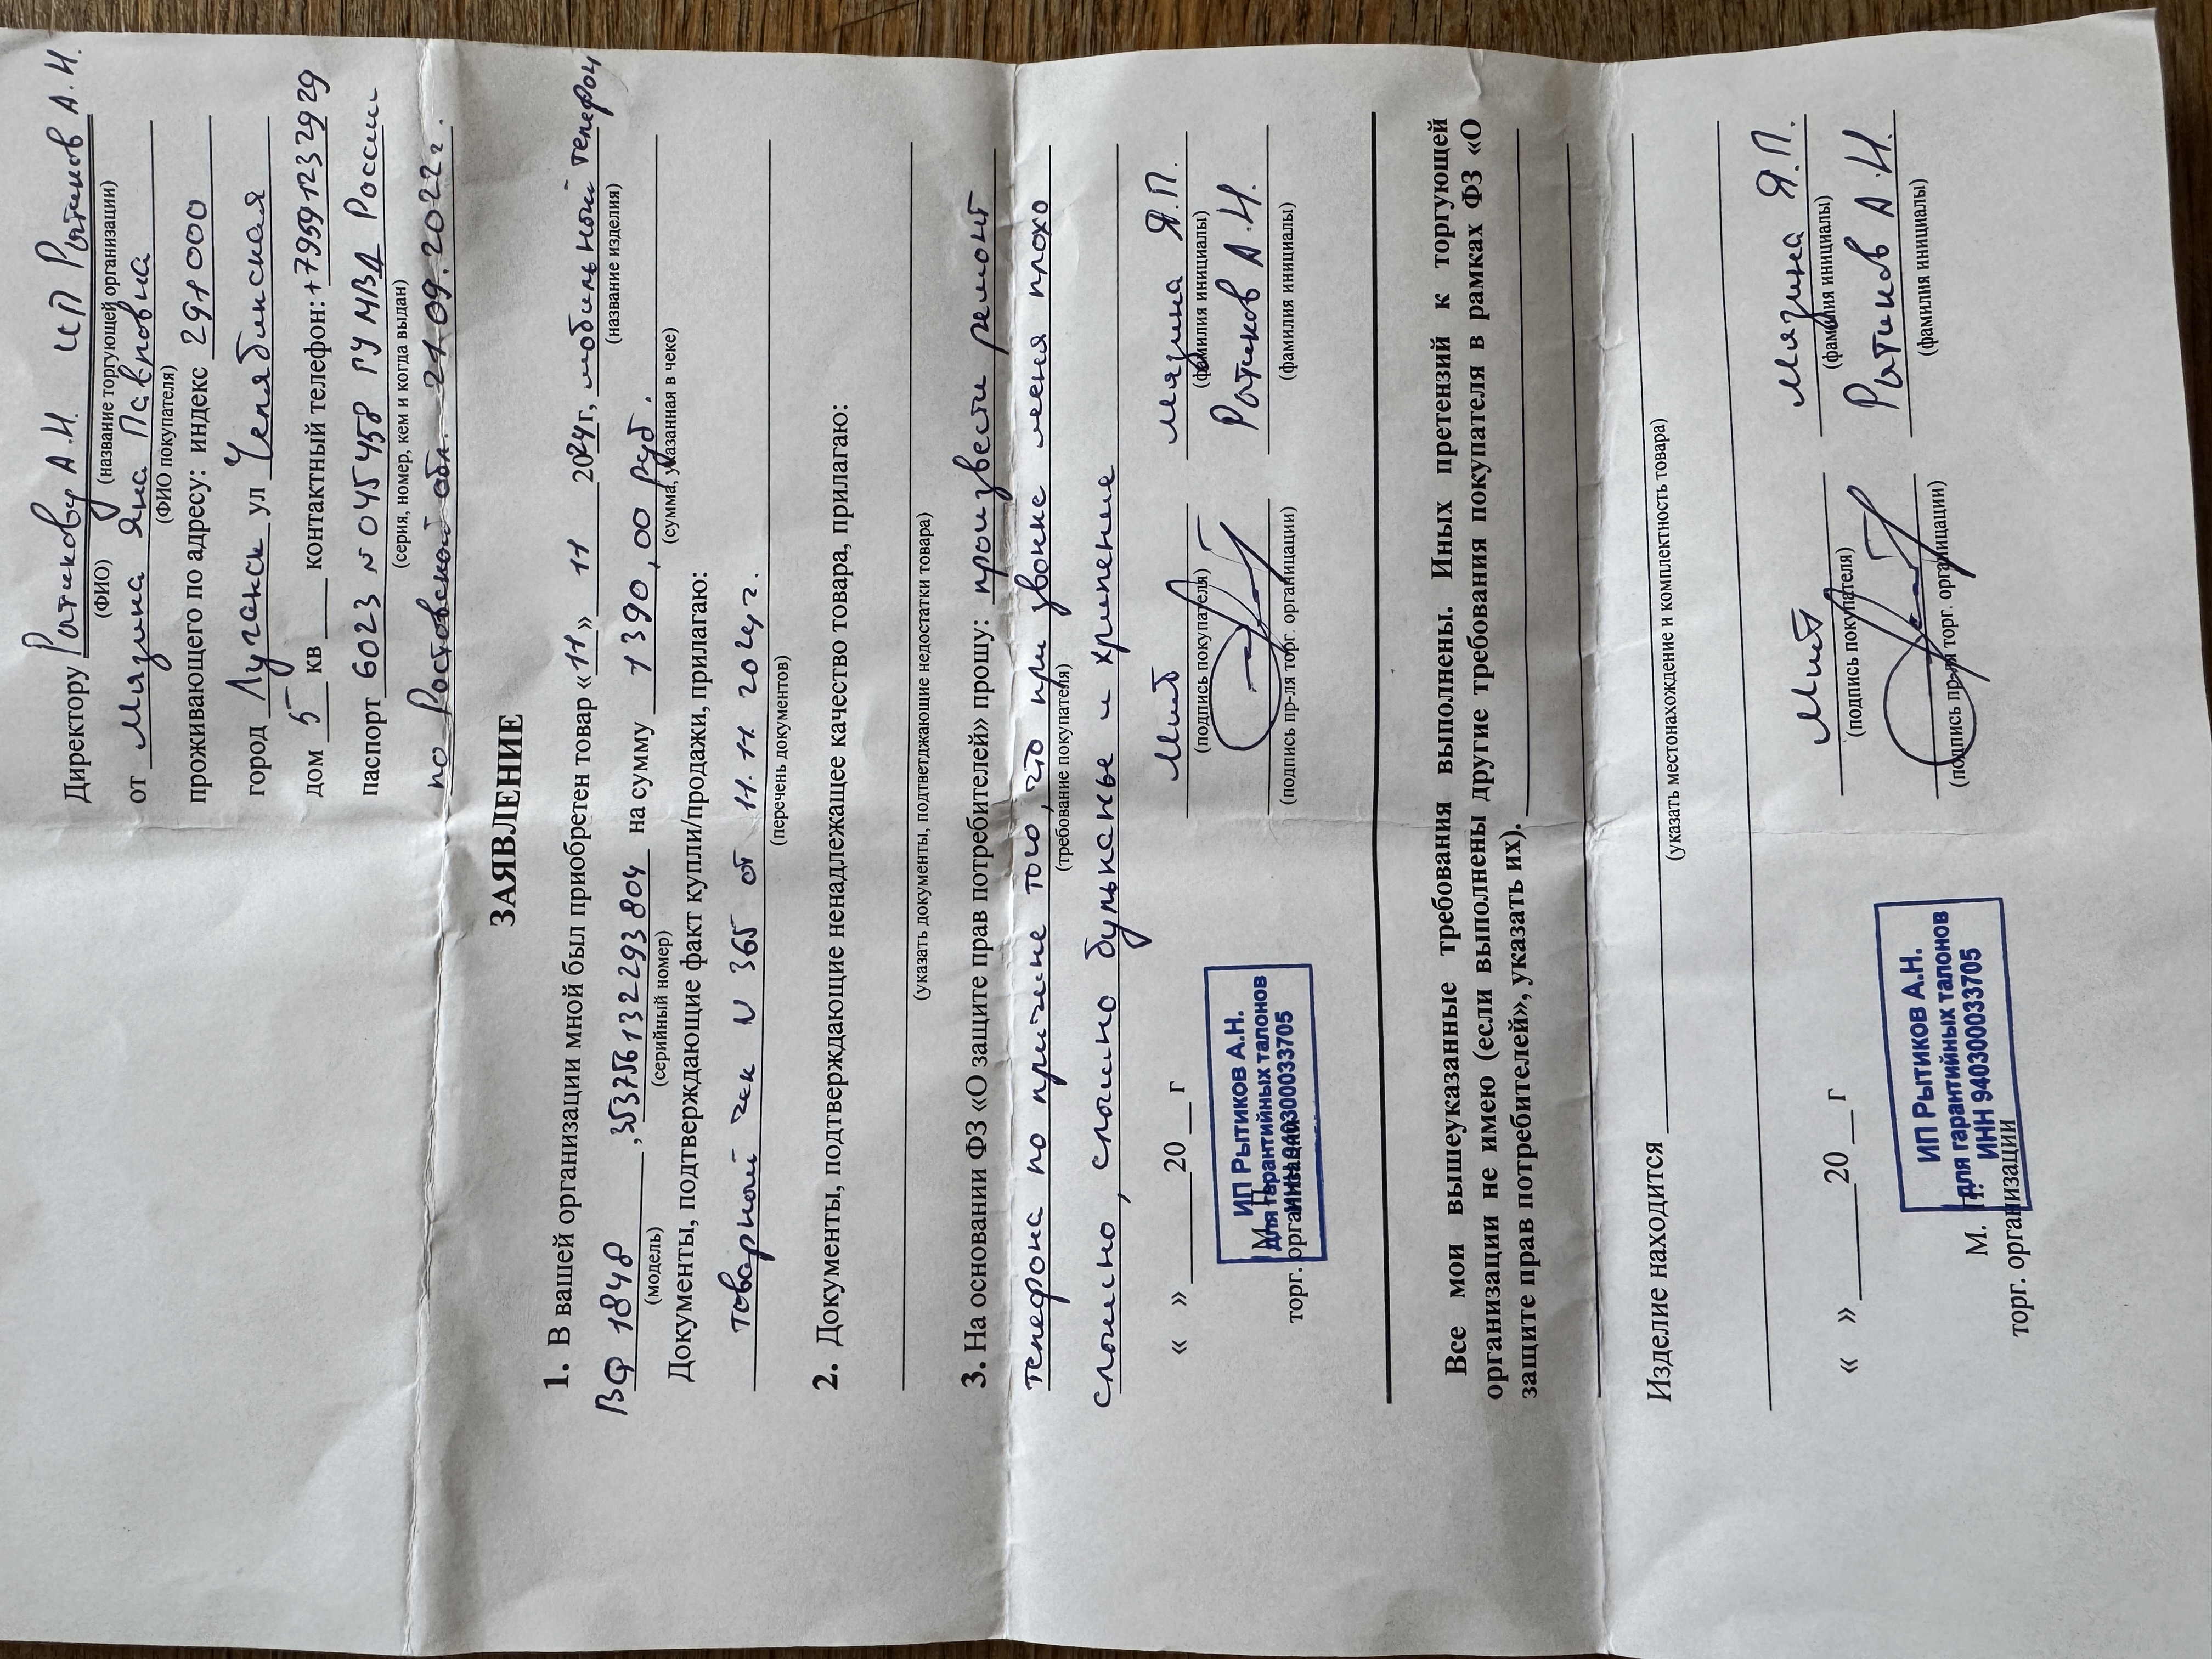 Директору Рытикову А.Н. ИП Рытиков А.Н.
(ФИО) (название торгующей организации)
от Мязина Яна Павловна
(ФИО покупателя)
проживающего по адресу: индекс 291000
город Луганск ул Челябинская
дом 5 кв ___ контактный телефон: +79591232929
паспорт 6023 N 045458 ГУ МВД России
(серия, номер, кем и когда выдан)
по Ростовской обл. 21.09.2022 г.
ЗАЯВЛЕНИЕ
1. В вашей организации мной был приобретен товар «11» 11 2024 г, мобильный телефон
(название изделия)
BQ 1848, 353756132293804 на сумму 1390,00 руб.
(модель) (серийный номер) (сумма, указанная в чеке)
Документы, подтверждающие факт купли/продажи, прилагаю:
товарный чек N 365 от 11.11.2024 г.
(перечень документов)
2. Документы, подтверждающие ненадлежащее качество товара, прилагаю:
(указать документы, подтверждающие недостатки товара)
3. На основании ФЗ «О защите прав потребителей» прошу: произвести ремонт
телефона по причине того, что при звонке меня плохо
(требование покупателя)
слышно, слышно бульканье и хрипение
Мязина Я.П.
(подпись покупателя) (фамилия инициалы)
« » ______ 20 __ г
Рытиков А.Н.
М. П.
торг. организации
(подпись пр-ля торг. организации) (фамилия инициалы)
ИП Рытиков А.Н.
для гарантийных талонов
ИНН 940300033705
Все мои вышеуказанные требования выполнены. Иных претензий к торгующей
организации не имею (если выполнены другие требования покупателя в рамках ФЗ «О
защите прав потребителей», указать их).
Изделие находится
(указать местонахождение и комплектность товара)
Мязина Я.П.
(подпись покупателя) (фамилия инициалы)
« » ______ 20 __ г
Рытиков А.Н.
М. П.
торг. организации
(подпись пр-ля торг. организации) (фамилия инициалы)
ИП Рытиков А.Н.
для гарантийных талонов
ИНН 940300033705